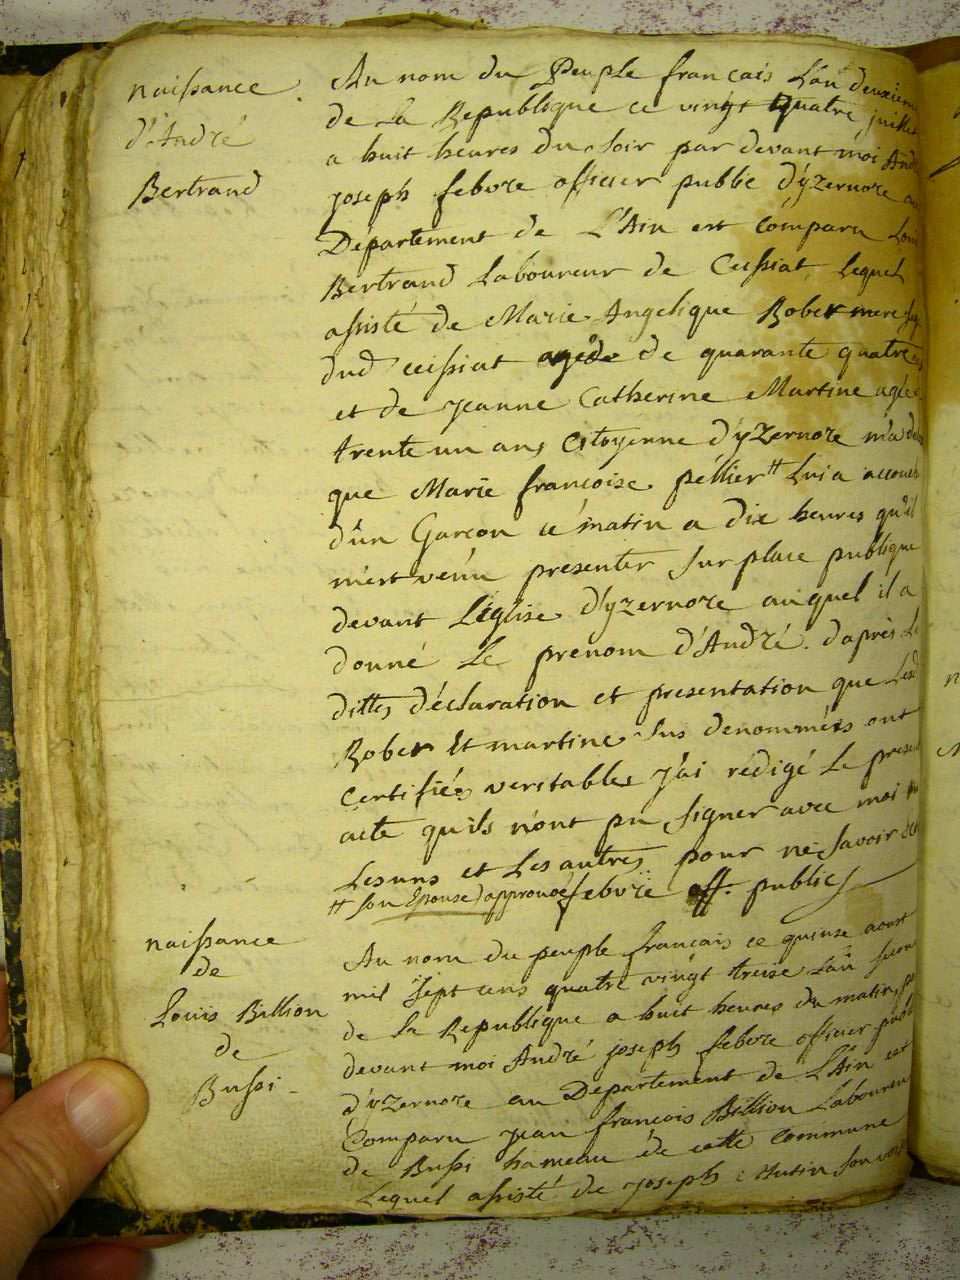 naissance
d'André
Bertrand
Au nom du Peuple français L'an deuxieme
de La Republique ce vingt quatre juillet
a huit heures du soir par devant moi André
joseph febvre officier public d'yzernore au
Département de L'Ain est Comparu Louis
Bertrand Laboureur de Ceissiat Lequel
assisté de Marie Angelique Rober mere
dud ceissiat agéde de quarante quatre ans
et de jeanne Catherine Martine agée
trente un ans Citoyenne d'yzernore m'a
que Marie francoise pellier # Lui a accouché
d'un Garcon ce matin a dix heures qu'il
m'est venu presenter sur place publique
devant L'église d'yzernore auquel il a
donné Le prenom d'André. d'après Les
dittes déclaration et presentation que
Rober et martine sus denommées ont
Certifiée veritables j'ai rédigé Le present
acte qu'ils n'ont pu signer avec moi
Les uns et Les autres pour ne savoir
# son Epouse) approuvé febvre off. public
naissance
de
Louis Billion
de
Bussi
Au nom du peuple francais ce quinze aoust
mil sept cens quatre vingt treize L'an second
de la Republique a huit heures du matin, par
devant moi André joseph febvre officier public
d'yzernore au Departement de L'Ain est
Comparu jean françois Billion Laboureur
de Bussi hameau de cette commune
Lequel assisté de joseph Antin son